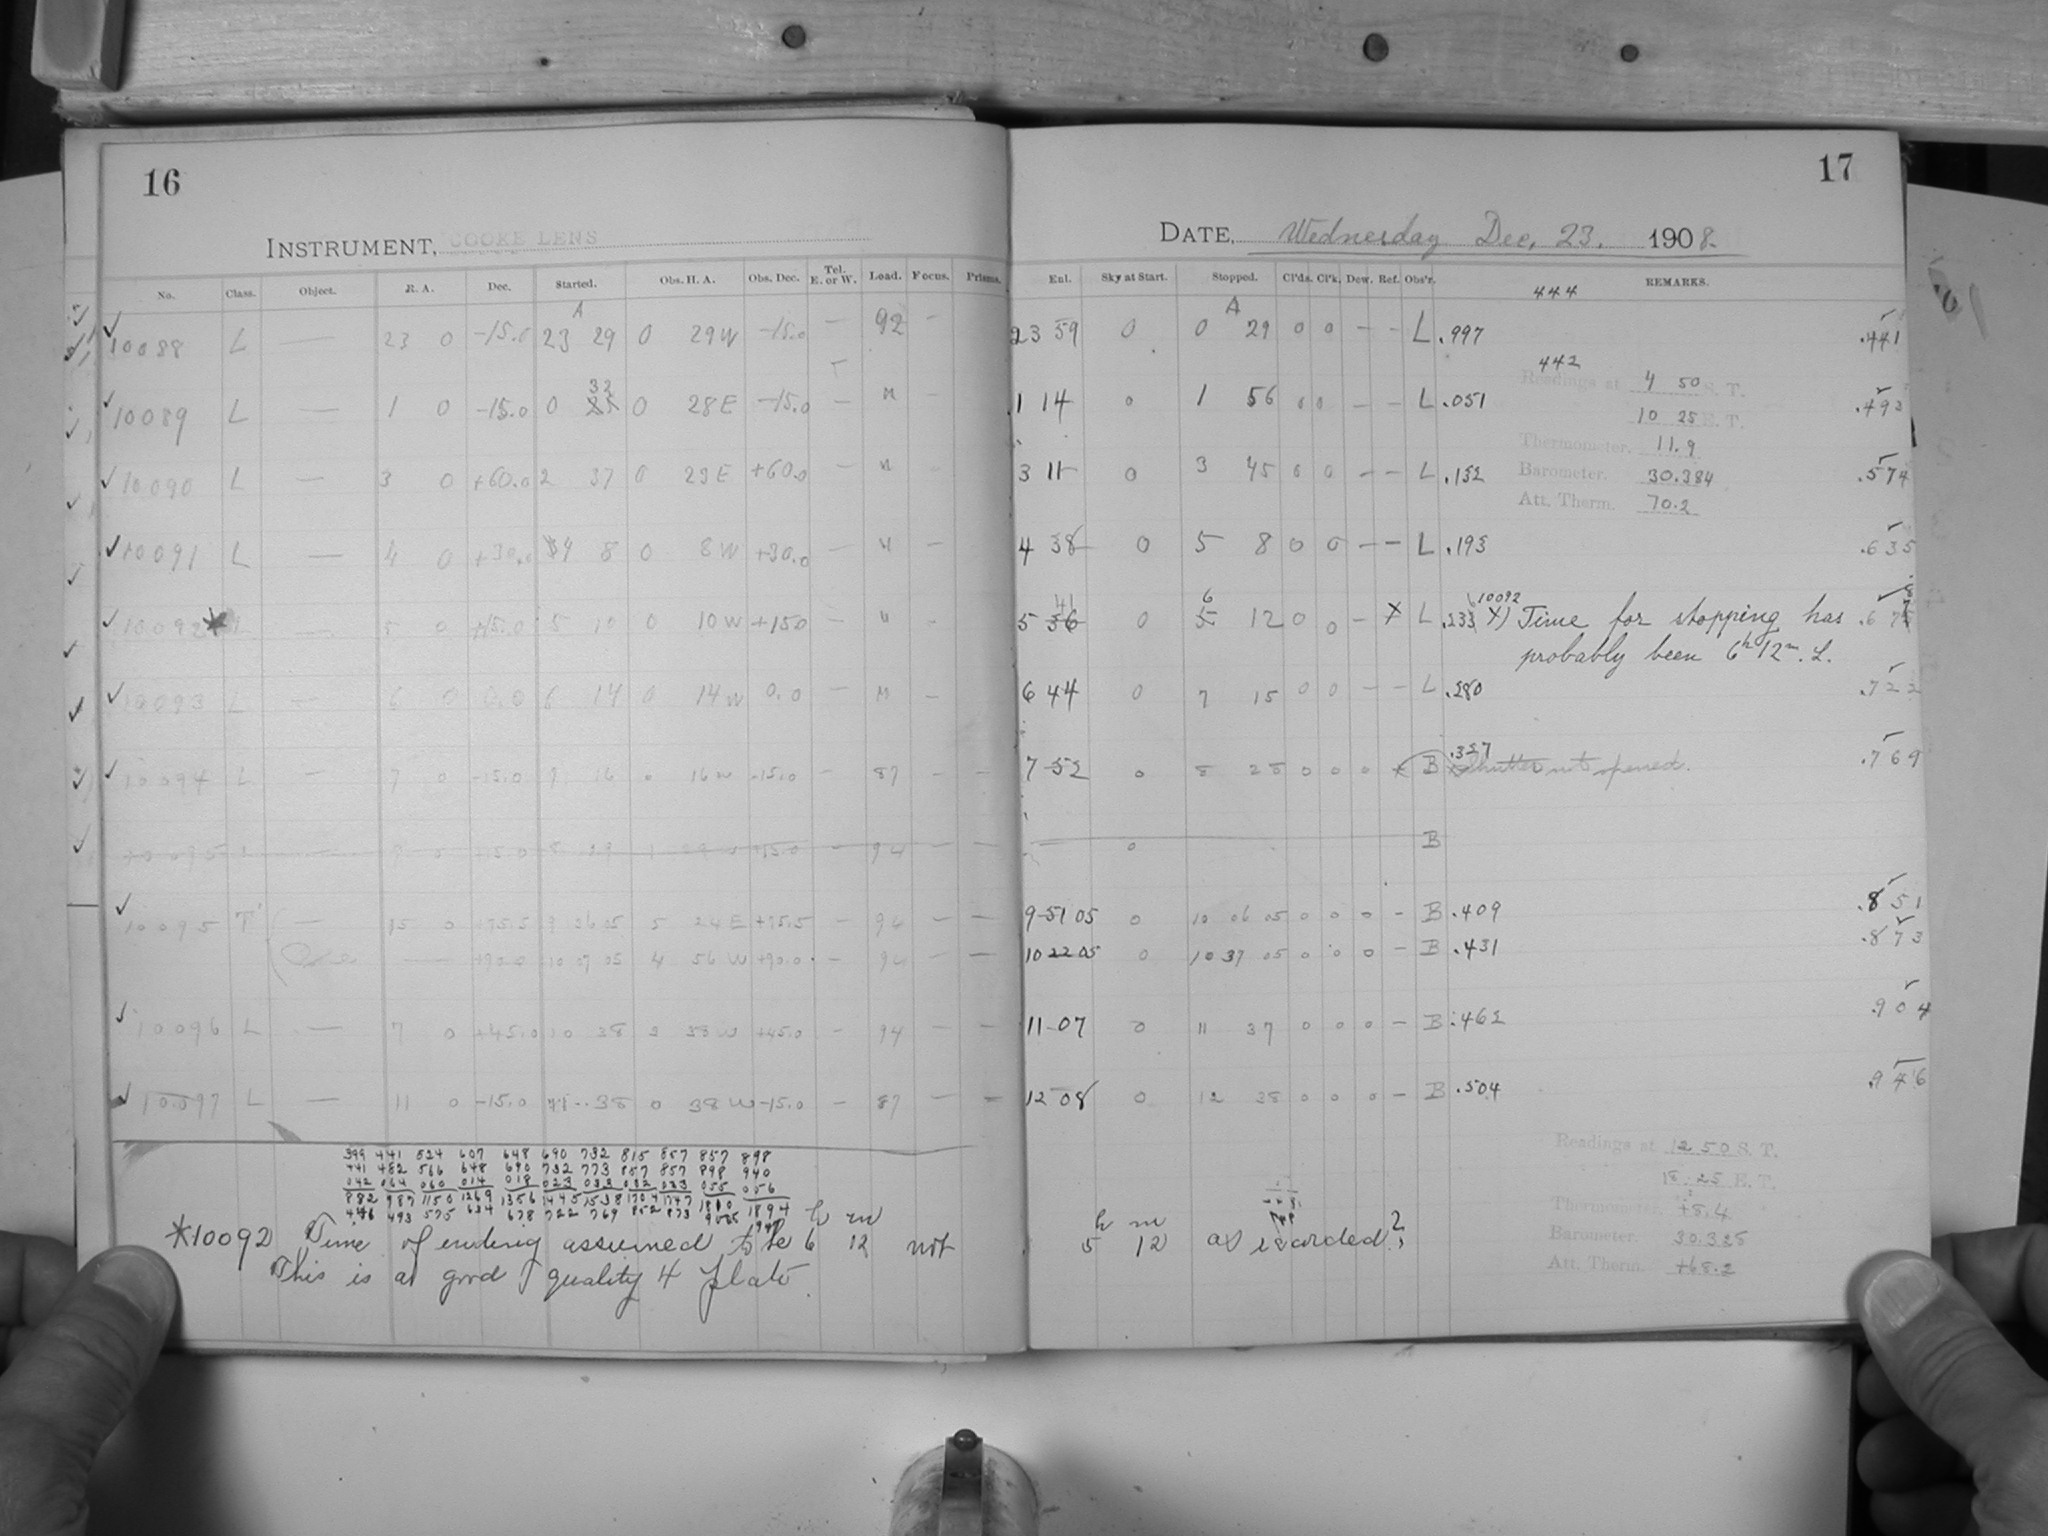 16
INSTRUMENT, COOKE LENS
No. Class. Object. R. A. Dec. Started. Obs. H. A. Obs. Dec. Tel. E. or W. Load. Focus. Prisms.
A
10088 L — 23 0 -15.0 23 29 0 29 W -15.0 — 92 -
32
10089 L — 1 0 -15.0 0 0 28 E -15.0 — " -
10090 L — 3 0 +60.0 2 37 0 23 E +60.0 — " -
10091 L — 4 0 +30.0 4 8 0 8 W +30.0 — "
10092 * L — 5 0 +15.0 5 10 0 10 W +15.0 — " -
10093 L — 6 0 0.0 6 14 0 14 W 0.0 — " -
10094 L — 7 0 -15.0 7 16 0 16 W -15.0 - 87 - -
10095 L — 9 0 +15.0 8 29 29 +15.0 - 94 - -
10095 T — 15 0 +75.5 9 36 05 5 24 E +75.5 - 94 - -
— +90.0 10 07 05 4 56 W +90.0 - 94 - -
10096 L — 7 0 +45.0 10 38 3 38 W +45.0 - 94 - -
10097 L — 11 0 -15.0 11 38 0 38 W -15.0 - 87 - -
399 441 524 607 648 690 732 815 857 857 898
441 482 566 648 690 732 773 857 857 898 940
042 064 060 014 018 023 033 032 033 055 056
882 987 1150 1269 1356 1445 1538 1704 1747 1810 1894
493 575 634 678 722 769 852 873
*10092 Time of ending assumed to be 6 h 12 m not
This is a good quality 4 plate.
17
DATE, Wednesday Dec. 23. 1908.
Enl. Sky at Start. Stopped. Cl'ds. Cl'k. Dew. Ref. Obs'r. REMARKS.
A 444
23 59 0 0 29 0 0 - - L .997 .441
442
Readings at 4 50 S. T.
1 14 0 1 56 0 0 - - L .051 .493
10 25 E. T.
Thermometer. 11.9
3 11 0 3 45 0 0 - - L .132 Barometer. 30.384 .574
Att. Therm. 70.2
4 38 0 5 8 0 0 - - L .193 .635
41 6 10092
5 36 0 5 12 0 0 - X L X) Time for stopping has
probably been 6h 12m. L.
6 44 0 7 15 0 0 - - L .280 .722
.327
7 52 0 8 28 0 0 0 x B Shutter not opened. .769
0 B
9 51 05 0 10 06 05 0 0 0 - B .409 .851
10 22 05 0 10 37 05 0 0 0 - B .431 .873
11 07 0 11 37 0 0 0 - B .462 .904
12 08 0 12 38 0 0 0 - B .504 .946
Readings at 12 50 S. T.
18 25 E. T.
Thermometer. +8.4
5 h 12 m as recorded?
Barometer. 30.325
Att. Therm. +68.2